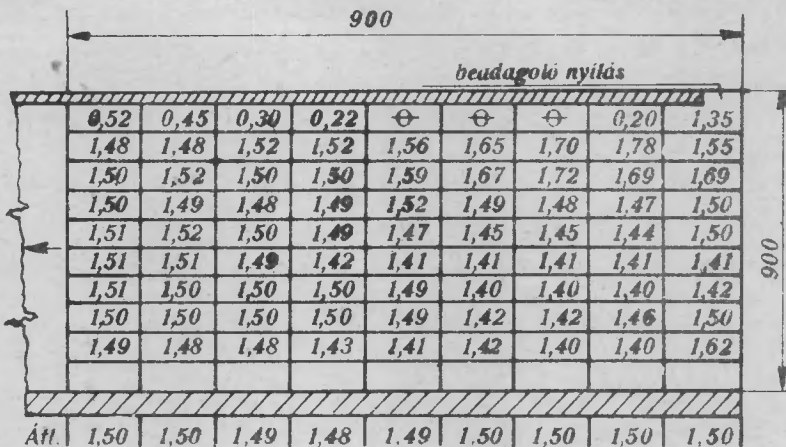 900
beadagoló nyílás
0,52 0,45 0,30 0,22 ϴ ϴ ϴ 0,20 1,35
1,48 1,48 1,52 1,52 1,56 1,65 1,70 1,78 1,55
1,50 1,52 1,50 1,50 1,59 1,67 1,72 1,69 1,69
1,50 1,49 1,48 1,49 1,52 1,49 1,48 1,47 1,50
1,51 1,52 1,50 1,49 1,47 1,45 1,45 1,44 1,50
1,51 1,51 1,49 1,42 1,41 1,41 1,41 1,41 1,41
1,51 1,50 1,50 1,50 1,49 1,40 1,40 1,40 1,42
1,50 1,50 1,50 1,50 1,49 1,42 1,42 1,46 1,50
1,49 1,48 1,48 1,43 1,41 1,42 1,40 1,40 1,62
900
Átl. 1,50 1,50 1,49 1,48 1,49 1,50 1,50 1,50 1,50